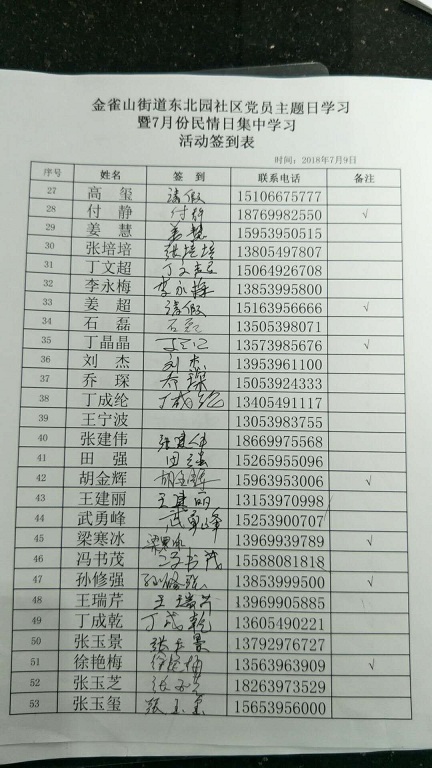 金雀山街道东北园社区党员主题日学习
暨7月份民情日集中学习
活动签到表
时间：2018年7月9日
序号 姓名 签到 联系电话 备注
27 高玺 请假 15106675777
28 付静 付静 18769982550 √
29 姜慧 姜慧 15953950515
30 张培培 张培培 13805497807
31 丁文超 丁文超 15064926708
32 李永梅 李永梅 13853995800
33 姜超 请假 15163956666 √
34 石磊 石磊 13505398071
35 丁晶晶 13573985676 √
36 刘杰 刘杰 13953961100
37 乔琛 乔琛 15053924333
38 丁成纶 丁成纶 13405491117
39 王宁波 13053983755
40 张建伟 张建伟 18669975568
41 田强 田强 15265955096
42 胡金辉 胡金辉 15963953006 √
43 王建丽 王建丽 13153970998
44 武勇峰 武勇峰 15253900707
45 梁寒冰 梁寒冰 13969939789 √
46 冯书茂 冯书茂 15588081818
47 孙修强 孙修强 13853999500 √
48 王瑞芹 王瑞芹 13969905885
49 丁成乾 丁成乾 13605490221
50 张玉景 张玉景 13792976727
51 徐艳梅 徐艳梅 13563963909 √
52 张玉芝 张玉芝 18263973529
53 张玉玺 张玉玺 15653956000